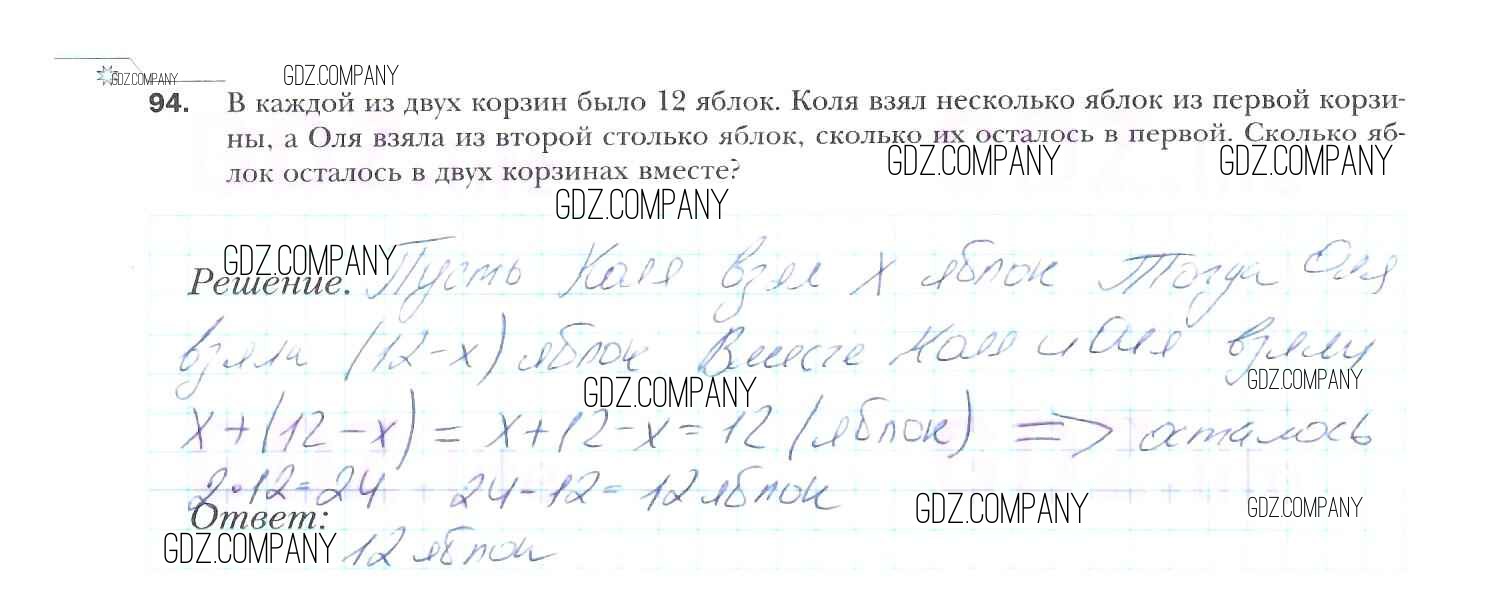 GDZ.COMPANY GDZ.COMPANY
94. В каждой из двух корзин было 12 яблок. Коля взял несколько яблок из первой корзи-
ны, а Оля взяла из второй столько яблок, сколько их осталось в первой. Сколько яб-
GDZ.COMPANY GDZ.COMPANY
лок осталось в двух корзинах вместе?
GDZ.COMPANY
GDZ.COMPANY
Решение. Пусть Коля взял x яблок Тогда Оля
взяла (12-x) яблок Вместе Коля и Оля взяли
GDZ.COMPANY GDZ.COMPANY
x+(12-x) = x+12-x=12 (яблок) => осталось
2·12=24 24-12= 12 яблок
Ответ:
GDZ.COMPANY GDZ.COMPANY
GDZ.COMPANY 12 яблок